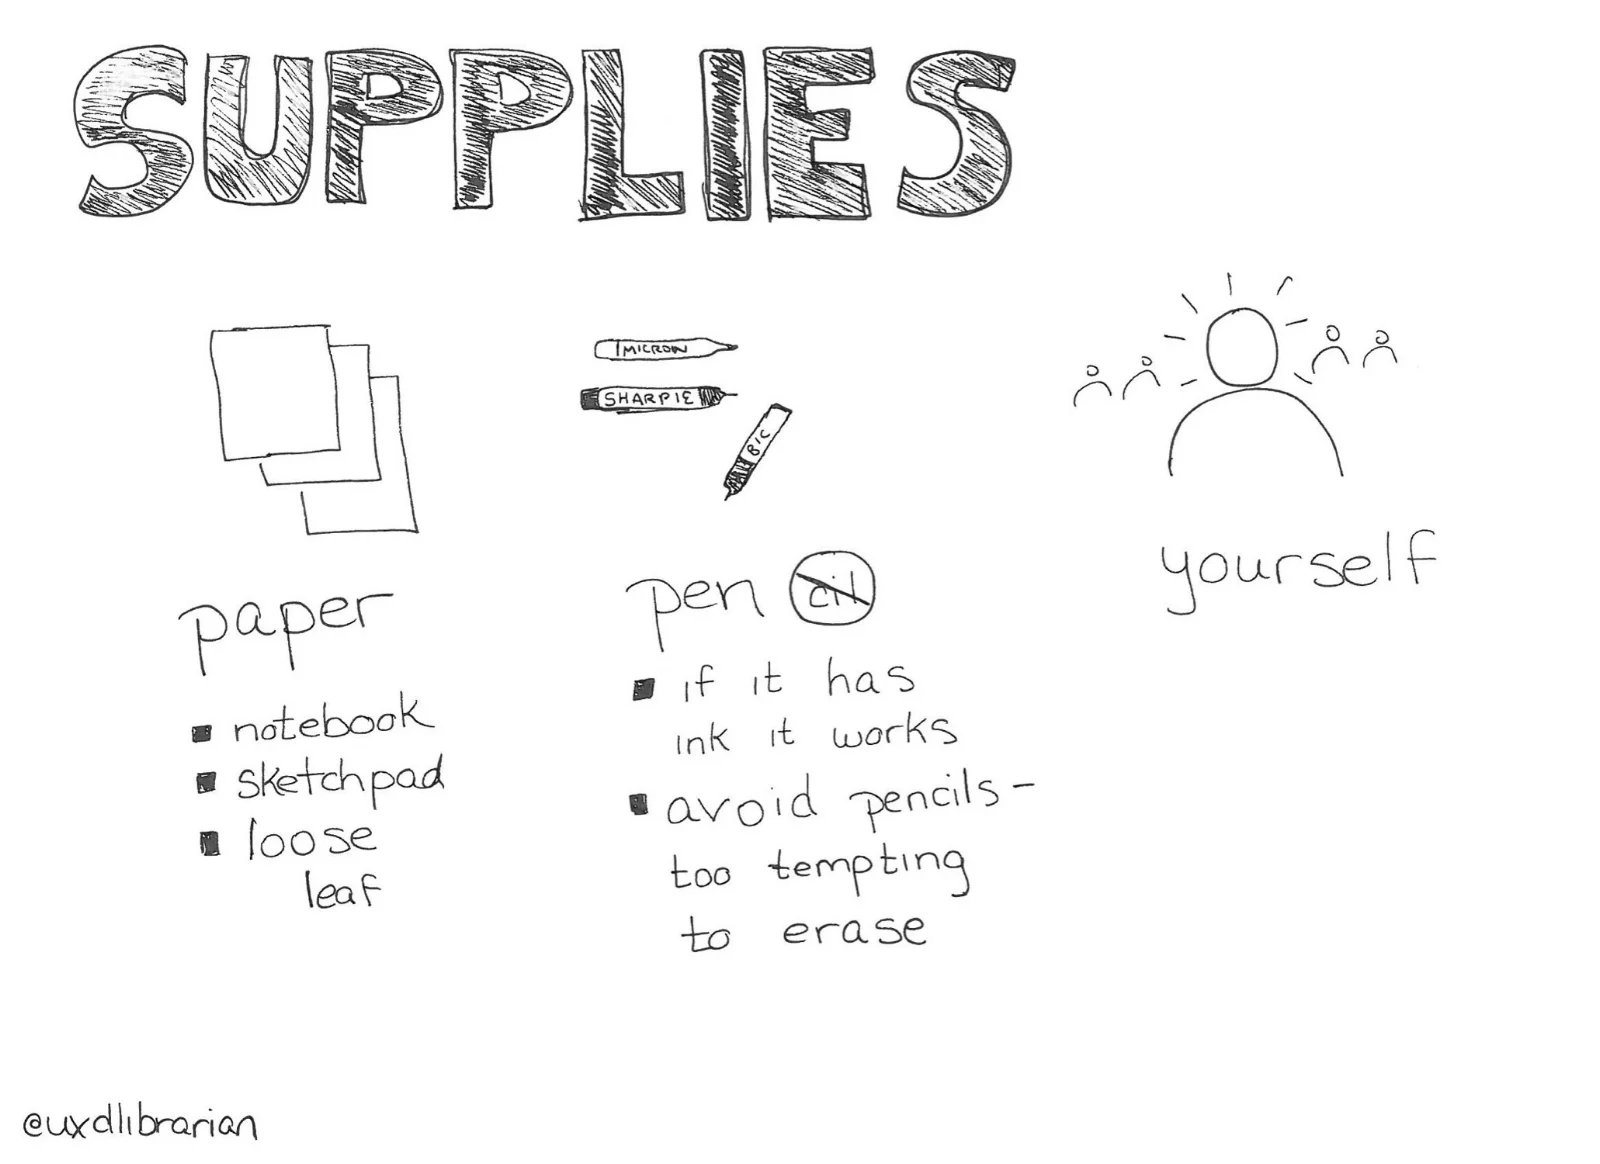 SUPPLIES
MICRON
SHARPIE
BIC
paper
■ notebook
■ sketchpad
■ loose
leaf
pen cil
■ if it has
ink it works
■ avoid pencils -
too tempting
to erase
yourself
@uxdlibrarian